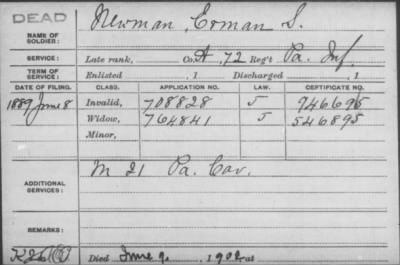 DEAD
Newman, Erman S.
NAME OF SOLDIER:
SERVICE: Late rank, Co. A, 72 Reg't Pa. Inf.
TERM OF SERVICE: Enlisted , 1 Discharged , 1
DATE OF FILING. CLASS. APPLICATION NO. LAW. CERTIFICATE NO.
1889 June 8 Invalid, 708828 J 746695
Widow, 764841 J 546895
Minor,
ADDITIONAL SERVICES: M 21 Pa. Cav.
REMARKS:
Died June 9, 1902, at